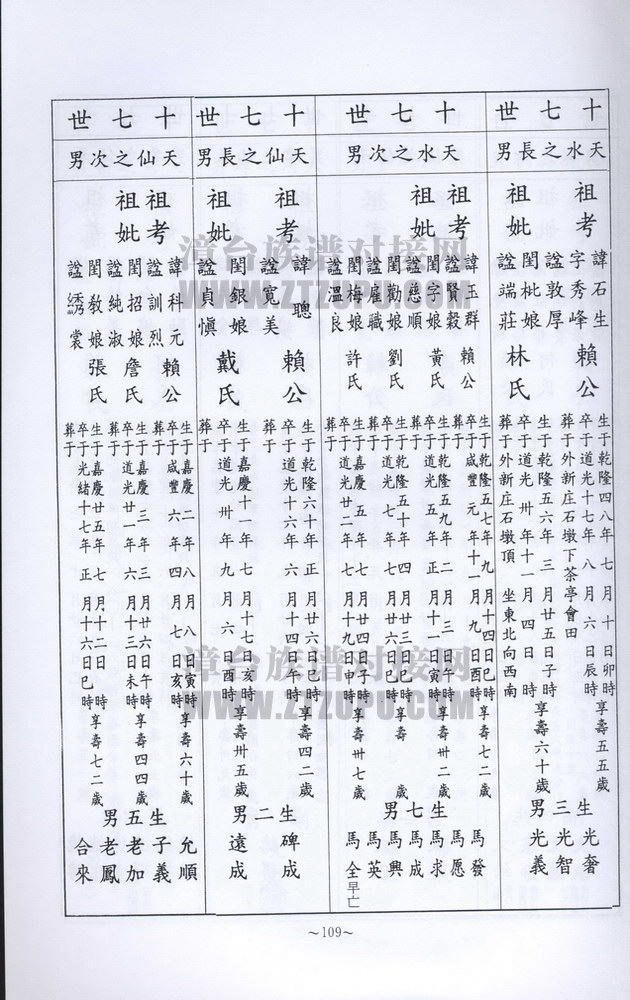 十七世
天水之長男
祖考
諱石生
字秀峰
諡敦厚
賴公
生于乾隆四八年七月十日卯時
卒于道光十七年八月六日辰時享壽五五歲
葬于外新庄石墩下茶亭會田
祖妣
閨枇娘
諡端莊
林氏
生于乾隆五六年三月廿五日子時
卒于道光卅年十一月四日時享壽六十歲
葬于外新庄石墩頂坐東北向西南
生三男
光奢
光智
光義
十七世
天水之次男
祖考
諱玉群
諡賢毅
賴公
生于乾隆五七年九月十四日巳時
卒于咸豐元年十一月九日酉時享壽七二歲
葬于
祖妣
閨字娘
諡慈順
黃氏
生于乾隆五九年二月三日午時
卒于道光五年正月十一日寅時享壽卅二歲
葬于
閨勸娘
諡雇職
劉氏
生于乾隆五十年四月廿三日巳時
卒于道光七年七月六日巳時享壽歲
葬于
閨梅娘
諡溫良
許氏
生于嘉慶五年七月廿四日子時
卒于道光廿二年七月十九日申時享壽卅七歲
葬于
生七男
馬發
馬愿
馬求
馬成
馬興
馬英
馬全早亡
十七世
天仙之長男
祖考
諱聰
諡寬美
賴公
生于乾隆六十年正月廿六日巳時
卒于道光十六年六月十四日午時享壽四二歲
葬于
祖妣
閨銀娘
諡貞慎
戴氏
生于嘉慶十一年七月十七日亥時
卒于道光卅年九月六日酉時享壽卅五歲
葬于
生二男
碑成
遠成
十七世
天仙之次男
祖考
諱科元
諡訓烈
賴公
生于嘉慶二年八月八日寅時
卒于咸豐六年四月七日亥時享壽六十歲
葬于
祖妣
閨招娘
諡純淑
詹氏
生于嘉慶三年三月廿六日午時
卒于道光廿一年六月十三日未時享壽四四歲
葬于
閨教娘
諡綉裳
張氏
生于嘉慶廿五年七月十二日時
卒于光緒十七年正月十六日巳時享壽七二歲
葬于
生五男
允順
子義
老加
老鳳
合來
漳台族谱对接网
WWW.ZTZUPU.COM
漳台族谱对接网
WWW.ZTZUPU.COM
~109~